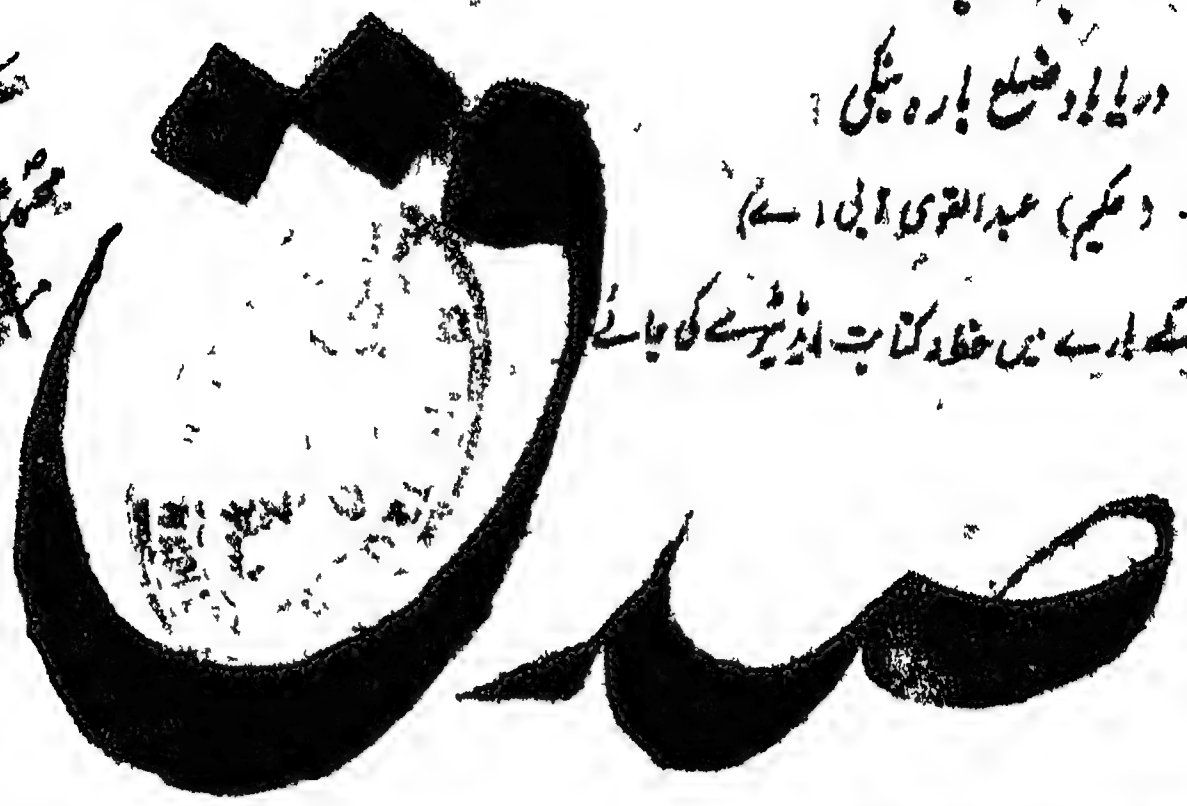 دریاباد ضلع بارہ بنکی
(حکیم) عبدالقوی (بی اے)
کے بارے میں خط و کتابت ایڈیٹر سے کی جائے
صدق